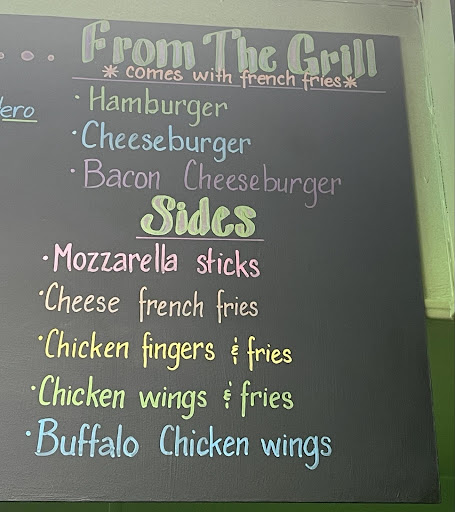 From The Grill
* comes with french fries *
· Hamburger
· Cheeseburger
· Bacon Cheeseburger
Sides
· Mozzarella sticks
· Cheese french fries
· Chicken fingers & fries
· Chicken wings & fries
· Buffalo Chicken wings